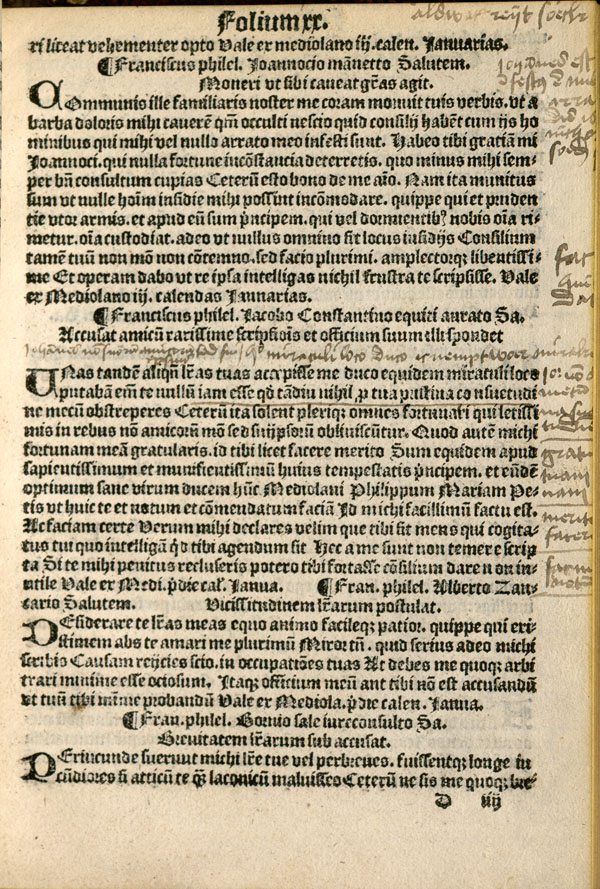 Folium xx.
ri liceat vehementer opto Vale ex mediolano iij. calen. Januarias.
¶ Franciscus philel. Joannocio mānetto Salutem.
Moneri vt sibi caueat grās agit.
COmmunis ille familiaris noster me coram monuit tuis verbis. vt a
barba doloris mihi cauerē qm̄ occulti nescio quid consilij habēt cum ijs ho
minibus qui mihi vel nullo arrato meo infesti sunt. Habeo tibi gratiā mi
Joannoci. qui nulla fortune incōstancia deterretis. quo minus mihi sem-
per bn̄ consultum cupias Ceterū esto bono de me aīo. Nam ita munitus
sum vt nulle hoīm insidie mihi possint incōmodare. quippe qui et pruden
tie vtor armis. et apud eū sum pn̄cipem. qui vel dormientibꝰ nobis oīa ri-
metur. oīa custodiat. adeo vt nullus omnino sit locus insidijs Consilium
tamē tuū non mō non cōtemno. sed facio plurimi. amplectorqꝫ libentissi-
me Et operam dabo vt re ipsa intelligas nichil frustra te scripsisse. Vale
ex Mediolano iij. calendas Januarias.
¶ Franciscus philel. Jacobo Constantino equiti aurato Sa.
Accusat amicū rarissime scriptiōis et officium suum illi spondet
UNas tandē aliqn̄ lr̄as tuas accepisse me duco equidem miraculi loco
putabam em̄ te nullū iam esse qd̄ tādiu nihil ꝓ tua pristina consuetudi
ne mecū obstreperes Ceterū ita solent pleriqꝫ omnes fortunati qui letissi
mis in rebus nō amicorū mō sed suijpsorū obliuiscūtur. Quod autē michi
fortunam meā gratularis. id tibi licet facere merito Sum equidem apud
sapientissimum et munificentissimū huius tempestatis pn̄cipem. et eūdē
optimum sane virum ducem hūc Mediolani Philippum Mariam Pe-
tis vt huic te et notum et cōmendatum faciā Id michi facillimū factu est.
Ac faciam certe Verum mihi declares velim que tibi sit mens qui cogita-
tus tui quo intelligā qd̄ tibi agendum sit Hec a me sunt non temere scrip
ta Si te mihi penitus recluseris potero tibi fortasse cōsilium dare non in-
utile Vale ex Medi. pdie cal. Janua. ¶ Fran. philel. Alberto Zan-
cario Salutem. Vicissitudinem lr̄arum postulat.
DEsiderare te lr̄as meas equo animo facileqꝫ patior. quippe qui exi-
stimem abs te amari me plurimū Miror tn̄. quod serius adeo michi
scribis Causam reijcies scio. in occupatiōes tuas At debes me quoqꝫ arbi
trari minime esse ociosum. Itaqꝫ officium meū ant tibi nō est accusandū
vt tuū tibi mīme probandū Vale ex Mediola. pdie calen. Janua.
¶ Fran. philel. Bornio sale iureconsulto Sa.
Breuitatem lr̄arum sub accusat.
PEriucunde fuerunt michi lr̄e tue vel perbreues. fuissentqꝫ longe iu
cūdiores si atticū te qꝫ laconicū maluisses Ceterū ne sis me quoqꝫ bre-
D iiij